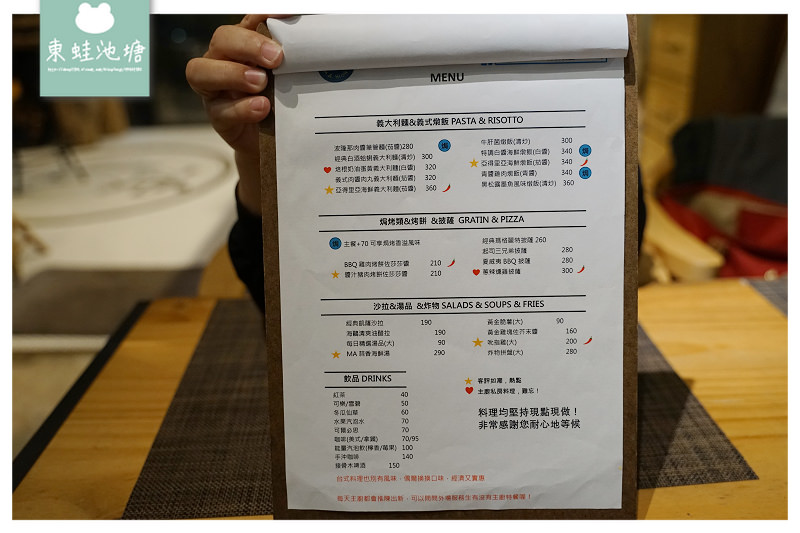 東蛙池塘
MENU
義大利麵&義式燉飯 PASTA & RISOTTO
波隆那肉醬筆管麵(茄醬)280 焗
經典白酒蛤蜊義大利麵(清炒) 300
培根奶油蛋黃義大利麵(白醬) 320
義式肉醬肉丸義大利麵(茄醬) 320
亞得里亞海鮮義大利麵(茄醬) 360
牛肝菌燉飯(清炒) 300
特調白醬海鮮燉飯(白醬) 340 焗
亞得里亞海鮮燉飯(茄醬) 340
青醬雞肉燉飯(青醬) 340 焗
黑松露墨魚風味燉飯(清炒) 360
焗烤類&烤餅 &披薩 GRATIN & PIZZA
焗 主餐+70 可享焗烤香溢風味
BBQ 雞肉烤餅佐莎莎醬 210
醬汁豬肉烤餅佐莎莎醬 210
經典瑪格麗特披薩 260
起司三兄弟披薩 280
夏威夷 BBQ 披薩 280
蔥辣嫩雞披薩 300
沙拉&湯品 &炸物 SALADS & SOUPS & FRIES
經典凱薩沙拉 190
海鷗清爽油醋拉 190
每日精選湯品(大) 90
MA 蒜香海鮮湯 290
黃金脆薯(大) 90
黃金雞塊佐芥末醬 160
吮指雞(大) 200
炸物拼盤(大) 280
飲品 DRINKS
紅茶 40
可樂/雪碧 50
冬瓜仙草 60
水果汽泡水 70
可爾必思 70
咖啡(美式/拿鐵) 70/95
能量汽泡飲(檸香/莓果) 100
手沖咖啡 140
接骨木啤酒 150
客評如潮,熱點
主廚私房料理,難忘!
料理均堅持現點現做!
非常感謝您耐心地等候
台式料理也別有風味,偶爾換換口味,經濟又實惠